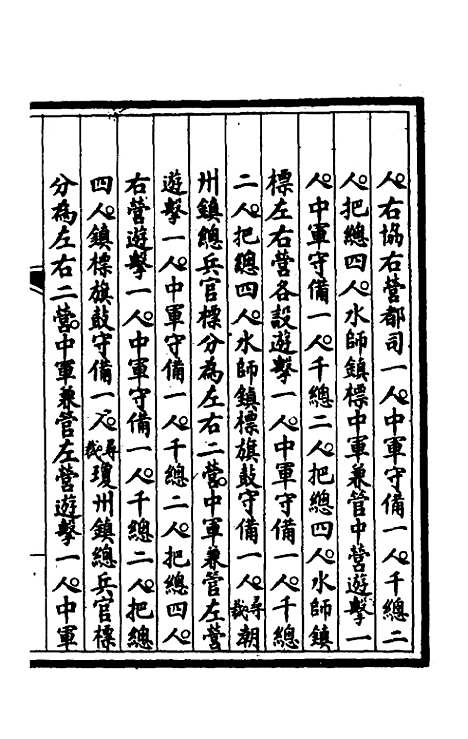 人右協右營都司一人中軍守備一人千總二
人把總四人水師鎮標中軍兼管中營遊擊一
人中軍守備一人千總二人把總四人水師鎮
標左右營各設遊擊一人中軍守備一人千總
二人把總四人水師鎮標旗鼓守備一人尋裁潮
州鎮總兵官標分為左右二營中軍兼管左營
遊擊一人中軍守備一人千總二人把總四人
右營遊擊一人中軍守備一人千總二人把總
四人鎮標旗鼓守備一人尋裁瓊州鎮總兵官標
分為左右二營中軍兼管左營遊擊一人中軍